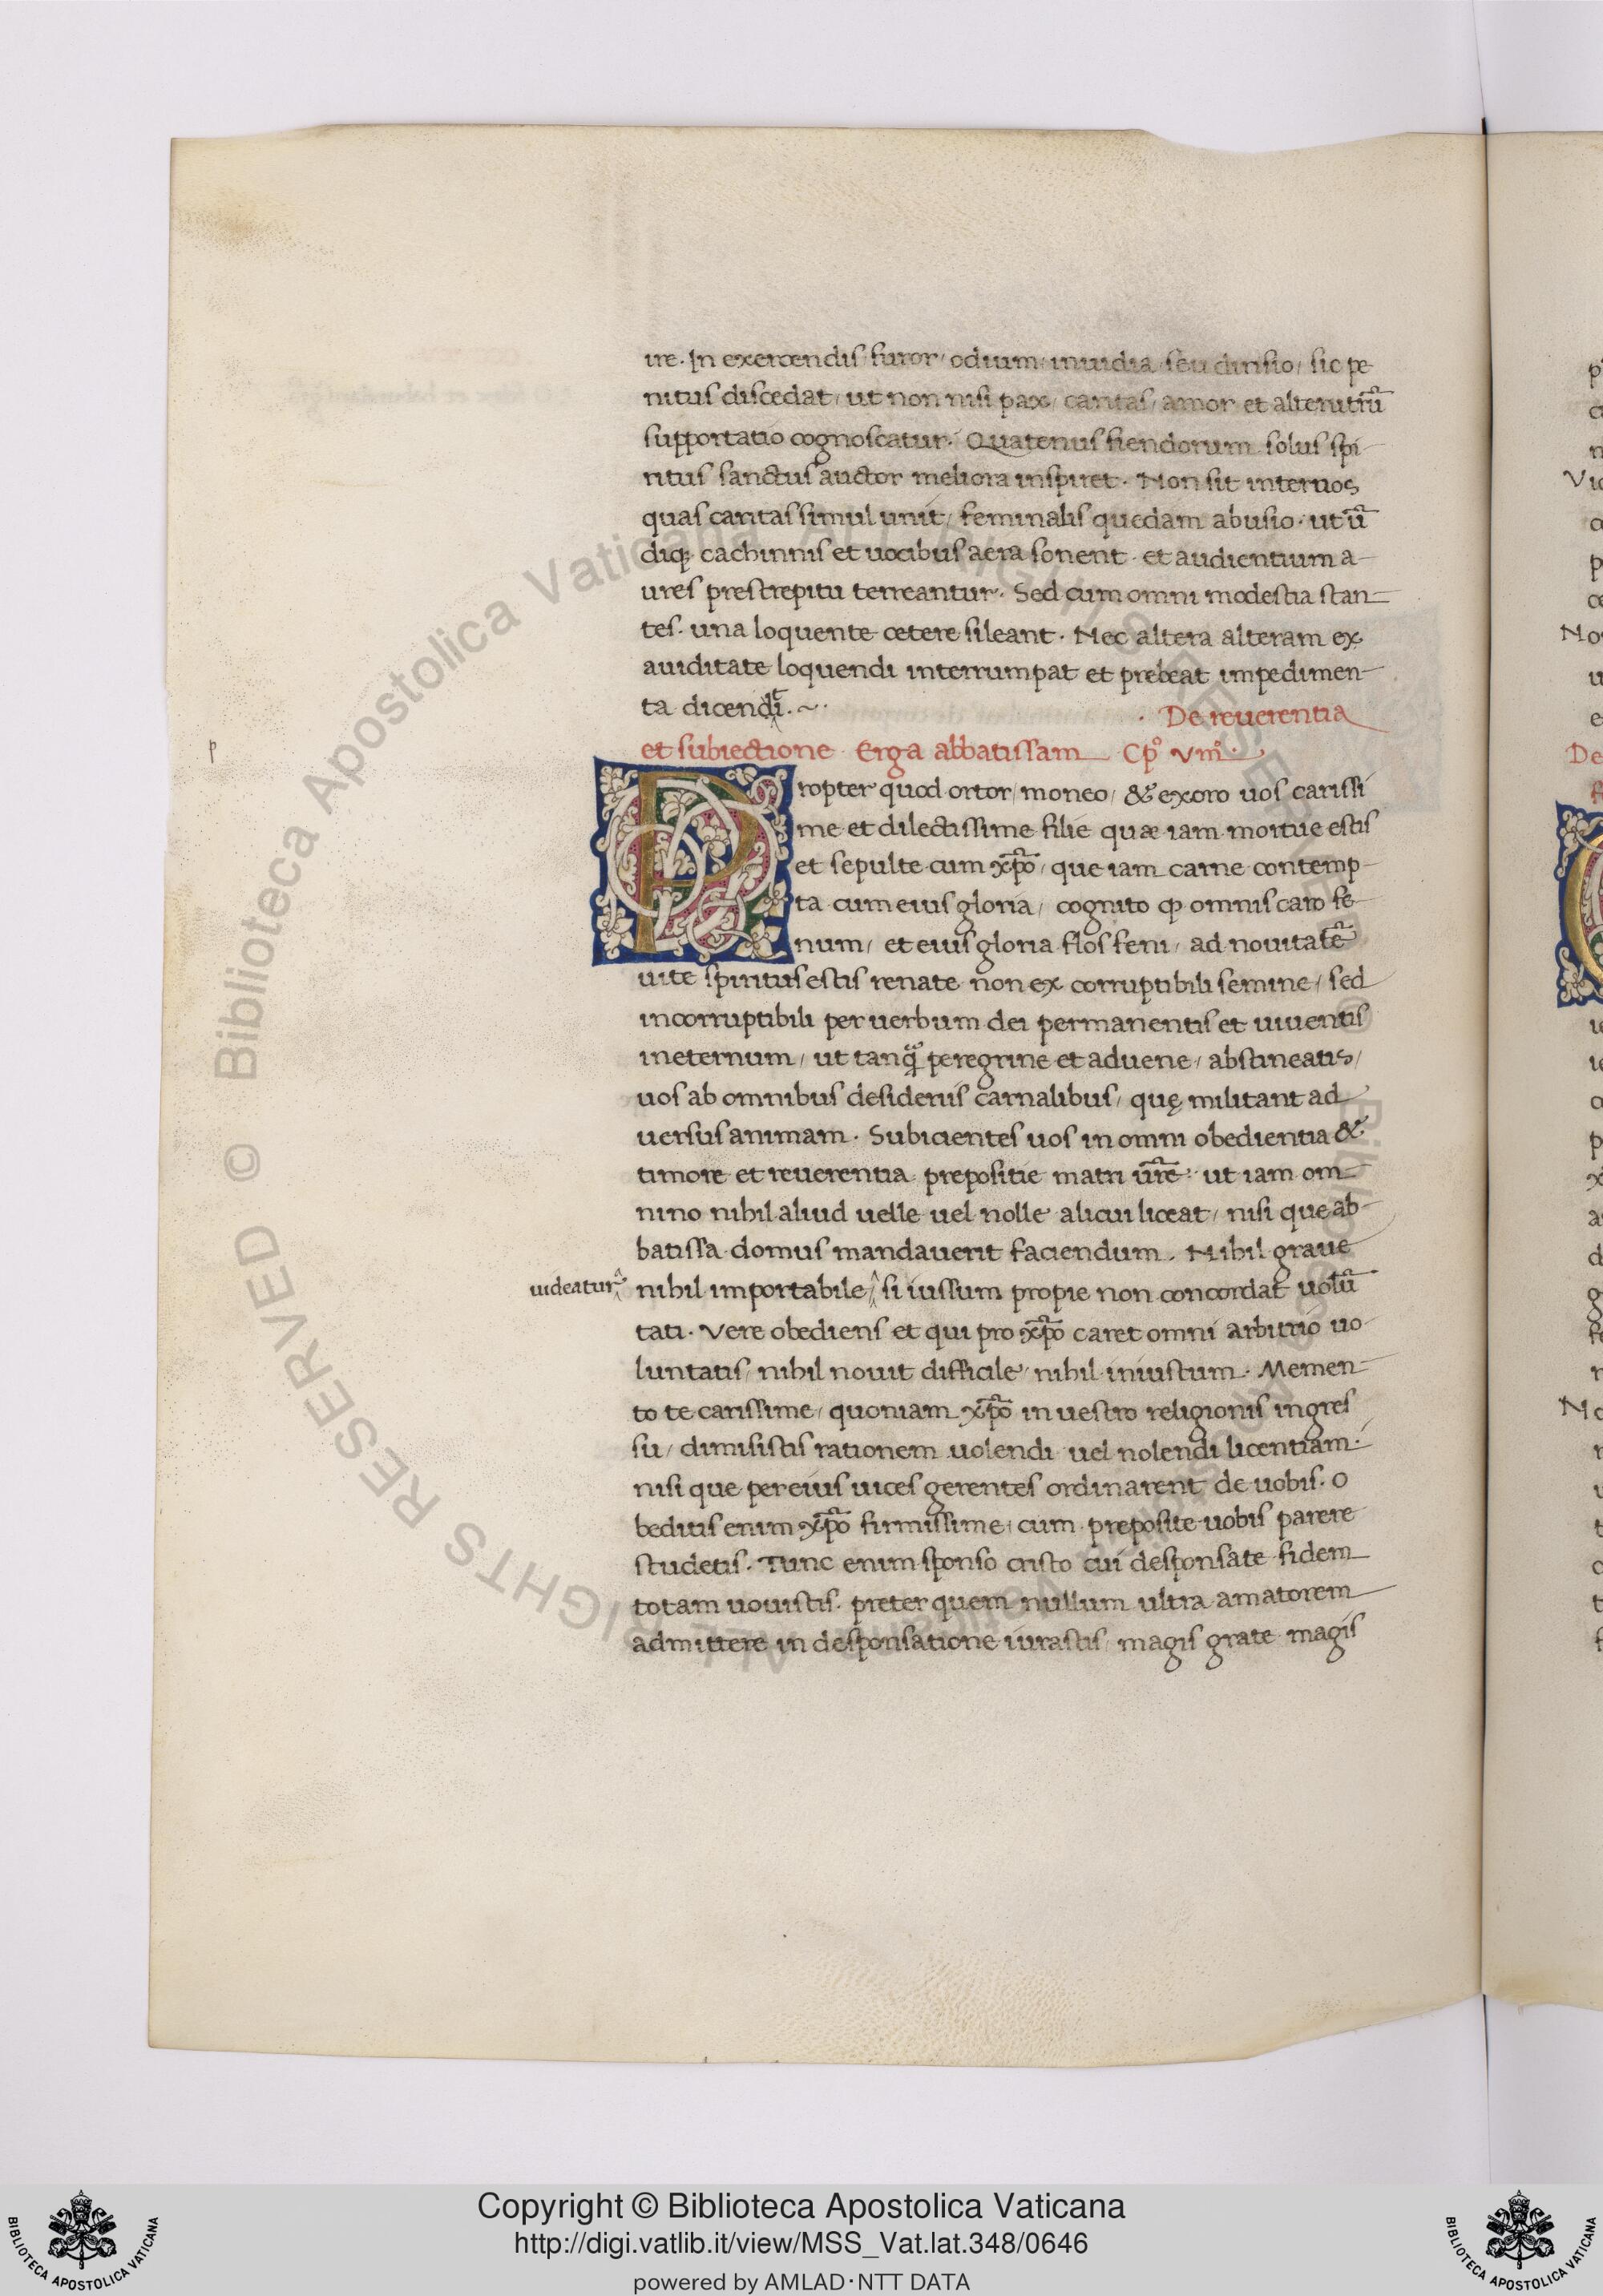 ire. In exercendis furor, odium, inuidia, seu dirisio, sic pe
nitus discedat, ut non nisi pax, caritas, amor et alterutrū
supportatio cognoscatur. Quatenus fiendorum solus spi-
ritus sanctus auctor meliora inspiret. Non sit inter uos
quas caritas simul unit, feminalis quedam abusio. ut ū
diqȝ cachinnis et uocibus aera sonent. et audientium a-
ures prestrepitu terreantur. Sed cum omni modestia stan-
tes. una loquente cetere sileant. Nec altera alteram ex
auiditate loquendi interrumpat et prebeat impedimen-
ta dicendi.~.
. De reuerentia
et subiectione Erga abbatissam Cpº VIIIº.
p
Propter quod ortor, moneo, & exoro uos carissi
me et dilectissime filie quæ iam mortue estis
et sepulte cum xp̄o, que iam carne contemp-
ta cum eius gloria, cognito ꝙ omnis caro fe-
num, et eius gloria flos feni, ad nouitatē
uite spiritus estis renate non ex corruptibili semine, sed
incorruptibili per uerbum dei permanentis et uiuentis
ineternum, ut tanq̄ peregrine et aduene, abstineatis,
uos ab omnibus desideriis carnalibus, quę militant ad
uersus animam. Subicientes uos in omni obedientia &
timore et reuerentia preposite matri ūre. ut iam om-
nino nihil aliud uelle uel nolle alicui liceat, nisi que ab-
batissa domus mandauerit faciendum. Nihil graue
uideatur
nihil importabile, si iussum propie non concordat uolū
tati. Vere obediens et qui pro xp̄o caret omni arbitrio uo-
luntatis, nihil nouit difficile, nihil iniustum. Memen-
to te carissime, quoniam xp̄o in uestro religionis ingres
su, dimisistis rationem uolendi uel nolendi licentiam.
nisi que per eius uices gerentes ordinarent de uobis. O
beditis enim xp̄o firmissime, cum preposite uobis parere
studetis. Tunc enim sponso cristo cui desponsate fidem
totam uouistis. preter quem nullum ultra amatorem
admittere in desponsatione iurastis, magis grate magis
© Biblioteca Apostolica Vaticana ALL RIGHTS RESERVED
Copyright © Biblioteca Apostolica Vaticana
http://digi.vatlib.it/view/MSS_Vat.lat.348/0646
powered by AMLAD·NTT DATA
BIBLIOTECA APOSTOLICA VATICANA
BIBLIOTECA APOSTOLICA VATICANA